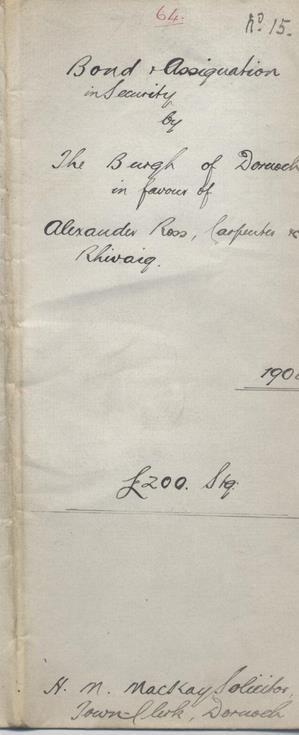 64.
No. 15.
Bond & Assignation
in Security
by
The Burgh of Dornoch
in favour of
Alexander Ross, Carpenter &c
Rhivaig.
190
£200. Stg.
H. N. Mackay Solicitor,
Town-Clerk, Dornoch